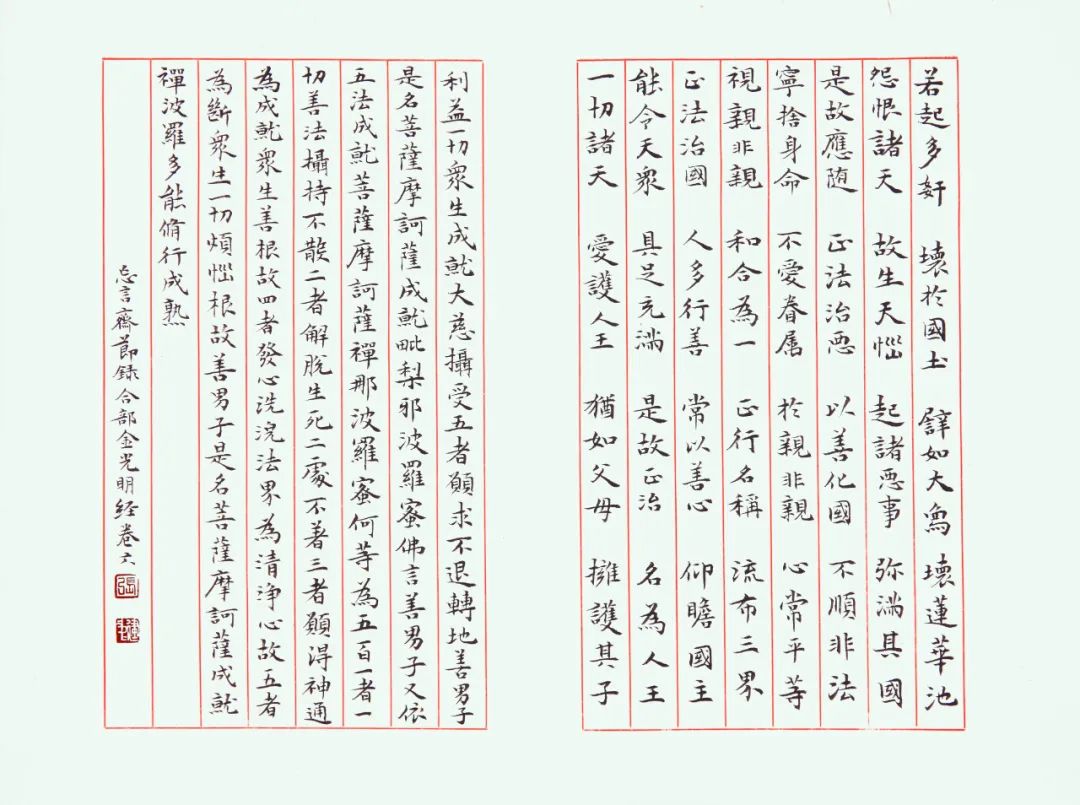 若起多奸 壞於國土 譬如大象 壞蓮華池
怨恨諸天 故生天惱 起諸惡事 弥滿其國
是故應随 正法治惡 以善化國 不順非法
寧捨身命 不愛眷屬 於親非親 心常平等
視親非親 和合為一 正行名稱 流布三界
正法治國 人多行善 常以善心 仰瞻國主
能令天眾 具足充滿 是故正治 名為人王
一切諸天 愛護人王 猶如父母 擁護其子
利益一切眾生成就大慈攝受五者願求不退轉地善男子
是名菩薩摩訶薩成就毗梨邪波羅蜜佛言善男子又依
五法成就菩薩摩訶薩禪那波羅蜜何等為五百一者一
切善法攝持不散二者解脫生死二處不著三者願得神通
為成就眾生善根故四者發心洗浣法界為清淨心故五者
為斷眾生一切煩惱根故善男子是名菩薩摩訶薩成就
禪波羅多能脩行成熟
忘言齋節録合部金光明経卷六
張